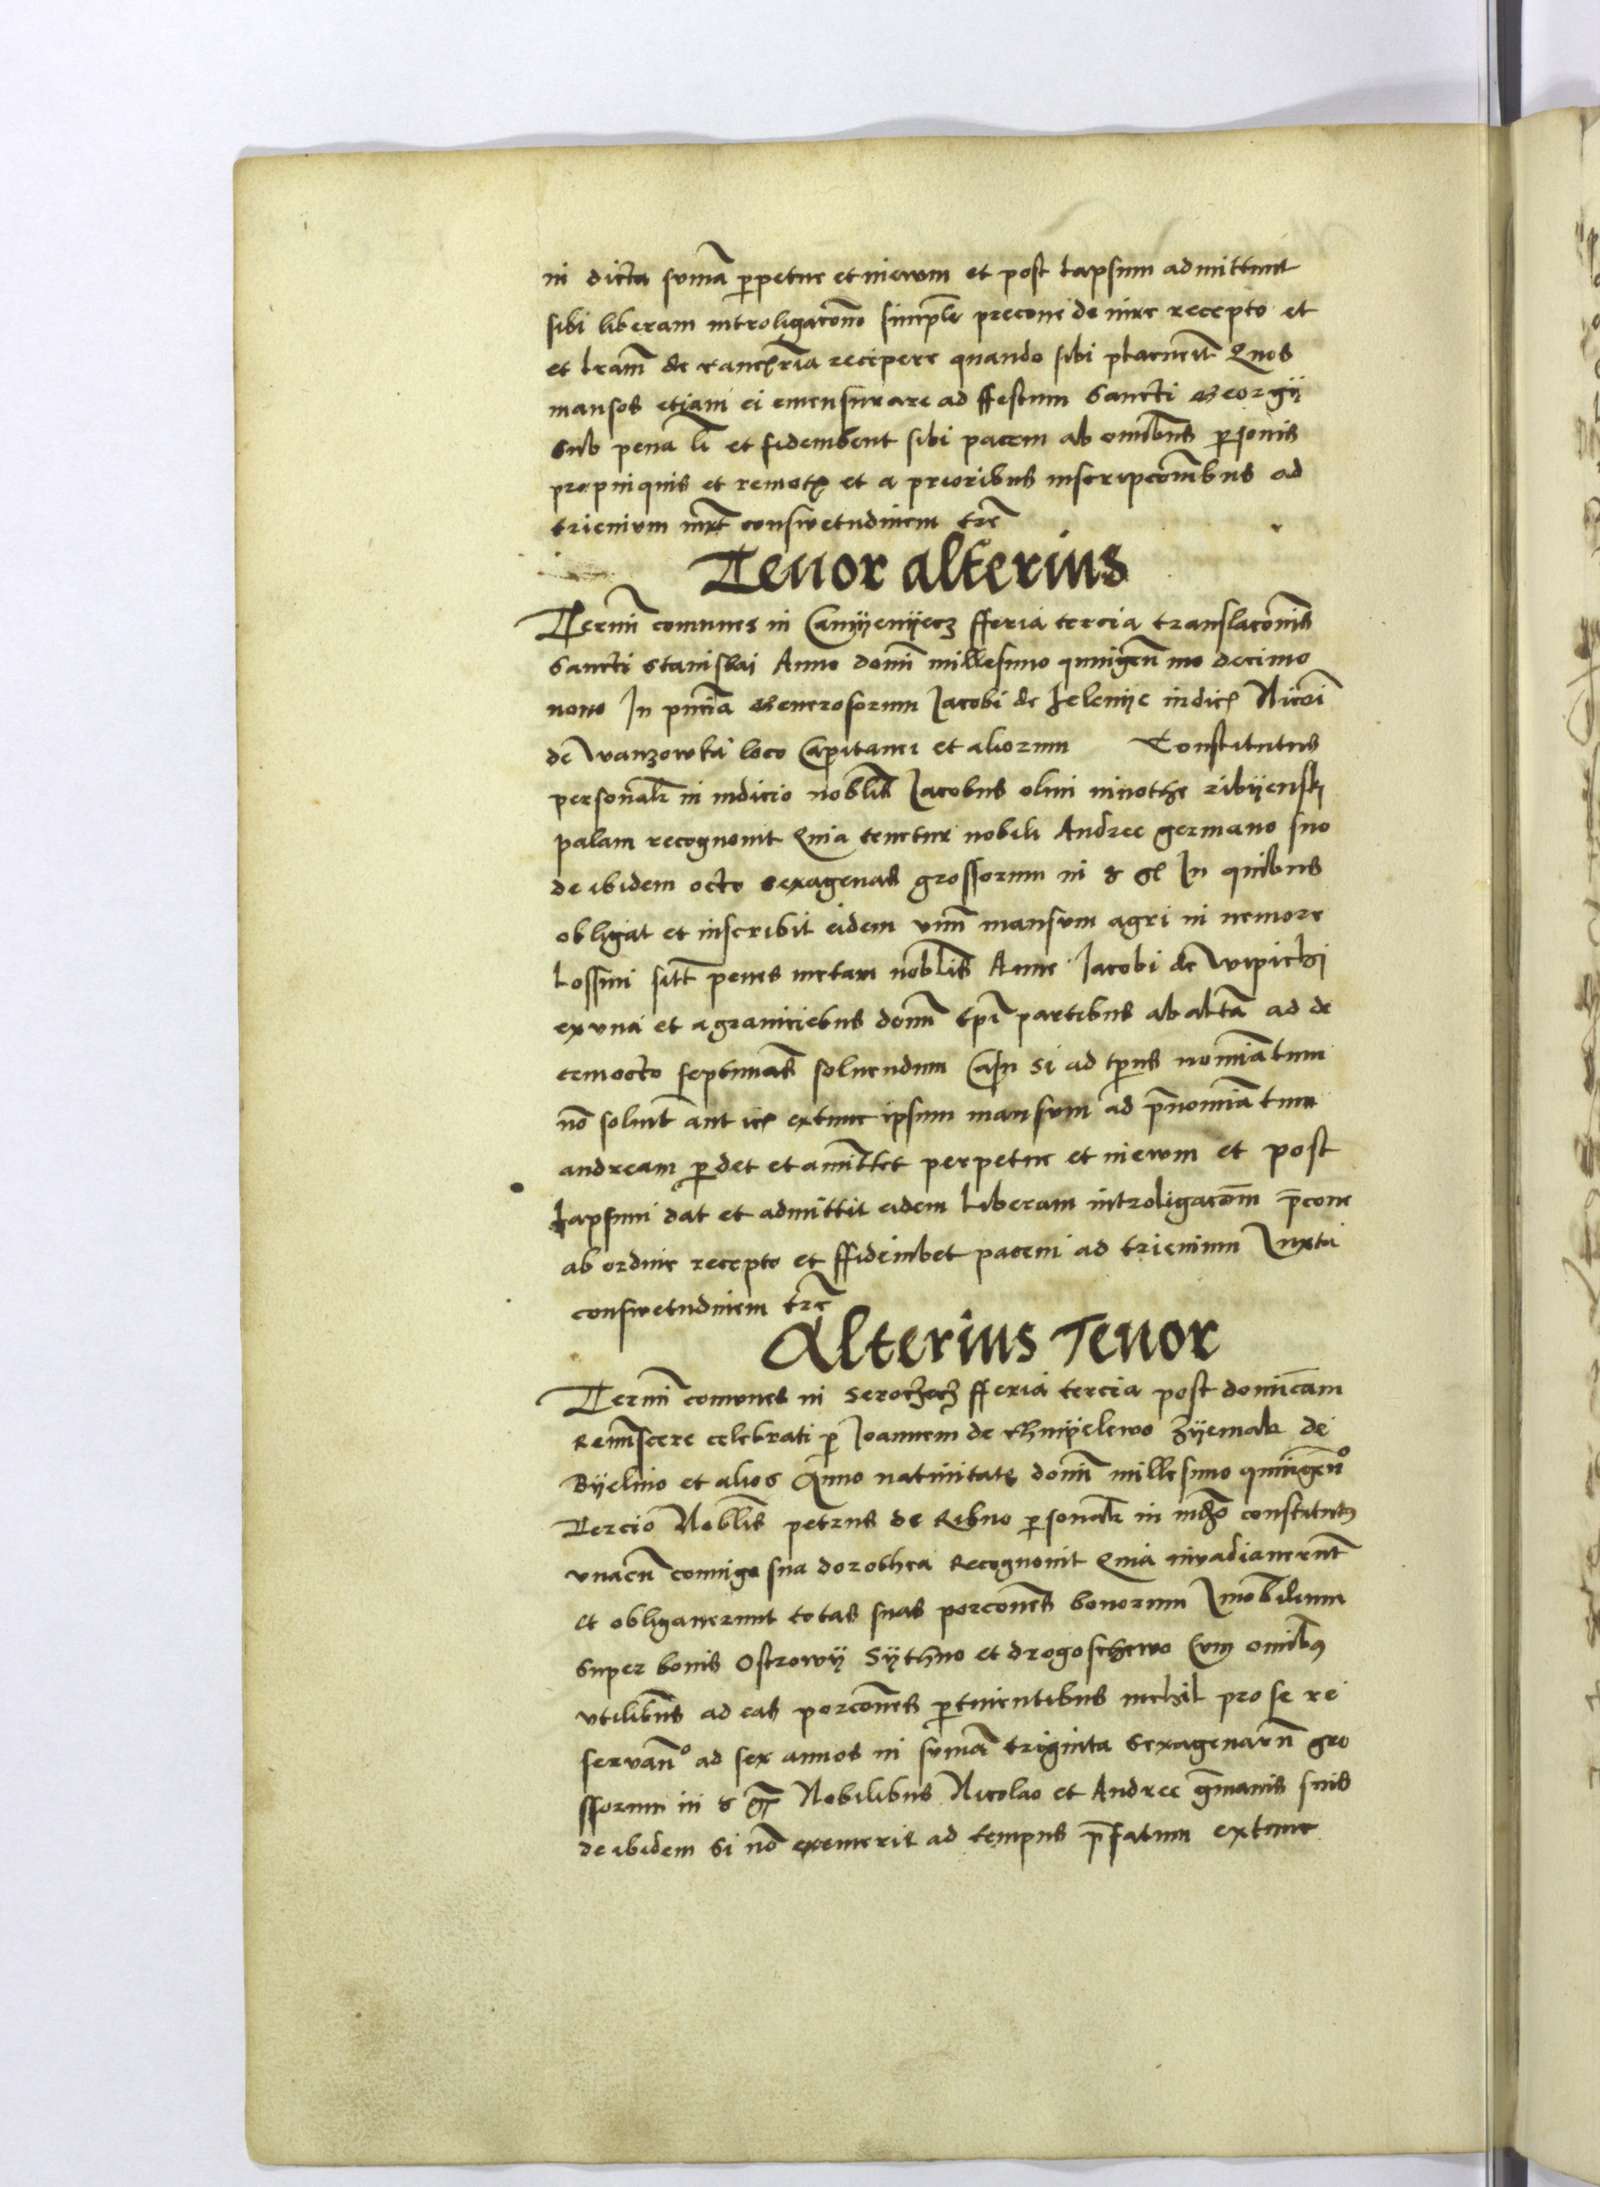 in dicta suma perpetue et in ewm et post lapsum admittunt
sibi liberam introligaconem simplr precone de iure recepto et
et lram de cancria recipere quando sibi placuerit Quos
mansos etiam ei emensurare ad ffestum Sancti Georgii
Sub pena et fideiubent sibi pacem ab omibus personis
propinquis et remotis et a prioribus inscripconibus ad
trienium iuxt conswetudinem tre
Tenor alterius
Termi comunes in Camyenyecz fferia tercia translaconis
Sancti Stanislai Anno domi millesimo quingenmo decimo
nono In pncia Generosorum Jacobi de Jelenye iudic Nicoi
de Wanzowka loco Capitanei et aliorum Constitutus
personalr in iudicio noblis Jacobus olim minothe ribyensky
palam recognovit Quia tenetur nobili Andree germano suo
de ibidem octo sexagenas grossorum in In quibus
obligat et inscribit eidem unm mansum agri in nemore
Lossini sitt penes metam noblis Anne Jacobi de Wipichi
ex una et a graniciebus domi epi partibus ab alta ad de
cemocto septimas solvendum Casu si ad tpus nominatum
no solverit aut extunc ipsum mansum ad prenominatum
andream perdet et amittet perpetue et in ewm et post
Lapsum dat et admittit eidem liberam introligacom precone
ab ordine recepto et ffideiubet pacem ad trienium Iuxta
conswetudinem tre
Alterius Tenor
Termi comunes in Seroczecz fferia tercia post dominicam
Reminiscere celebrati per Joannem de Chmyelewo Zyemak de
Byelino et alios Anno nativitatis domi millesimo quingeno
Tercio Noblis petrus de Ribno personalr in iudicio constitutus
unacum coniuge sua dorothea Recognovit Quia invadiaverunt
et obligaverunt totas suas porcones bonorum Imobilium
Super bonis Ostrowy Sythno et drogoschewo Cum omibus
utilibus ad eas porcones pertinentibus nichil pro se re
servando ad sex annos in suma triginta Sexagenarum gro
ssorum in Nobilibus Nicolao et Andree germanis suis
de ibidem Si no exemerit ad tempus prefatum extunc